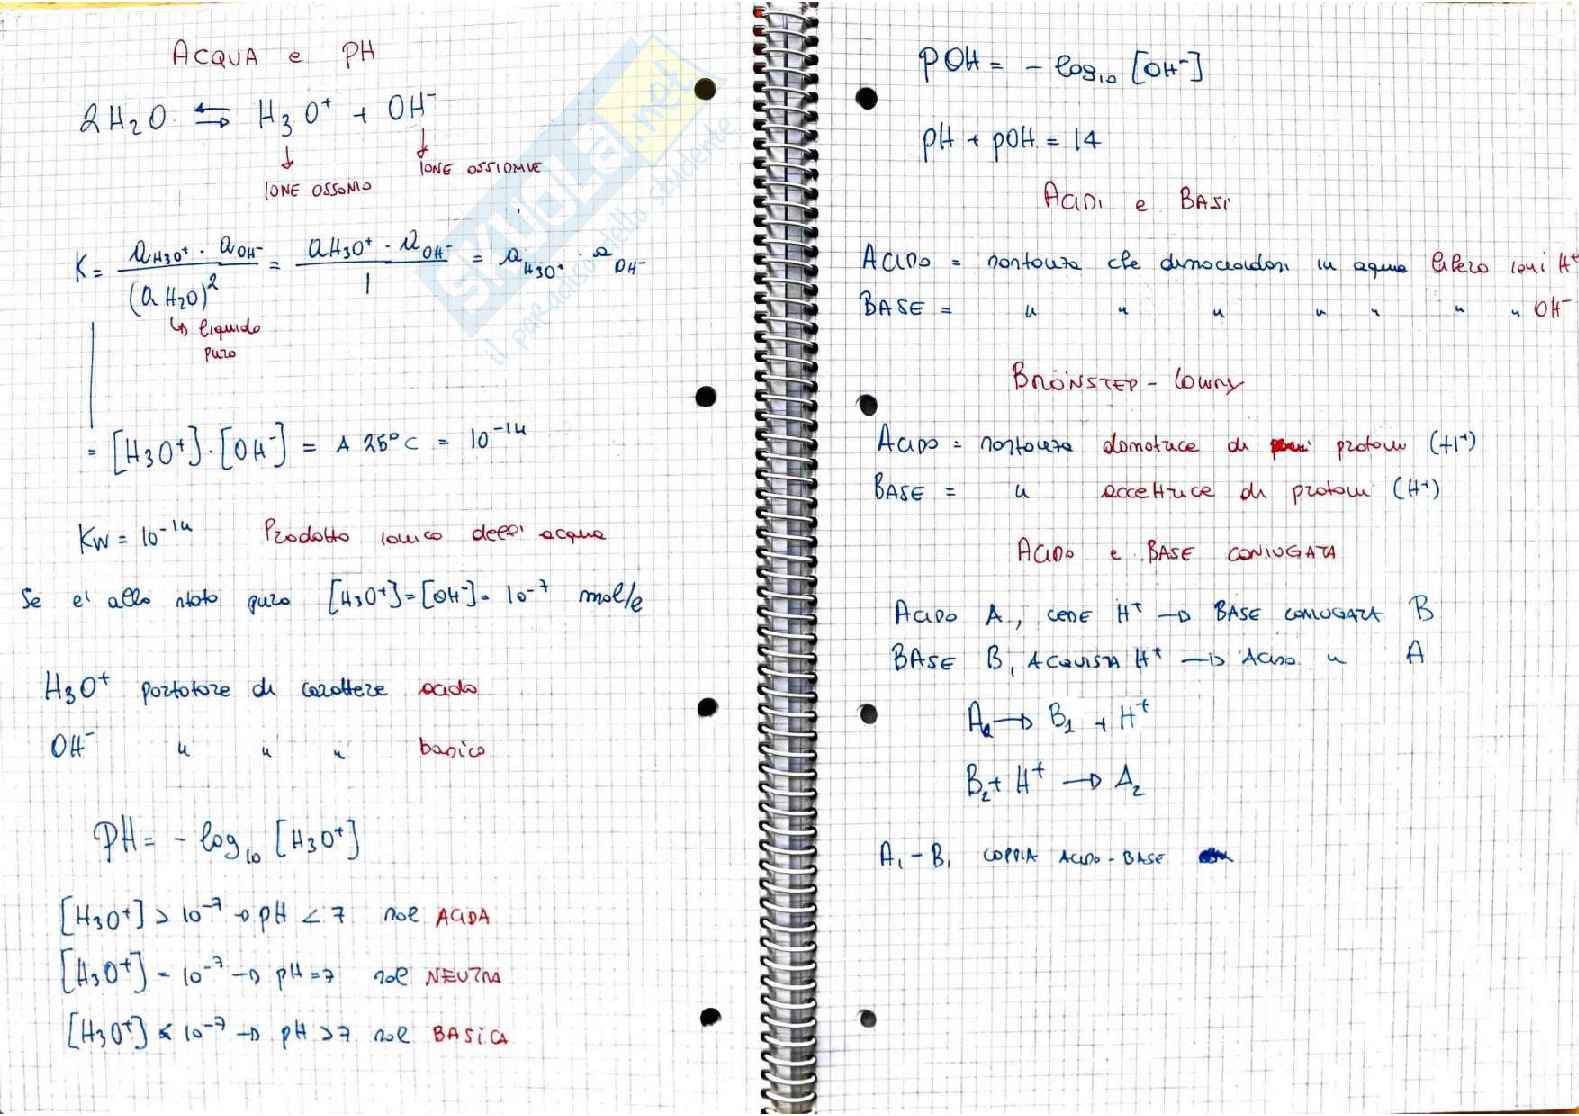 ACQUA e PH
2H₂O ⇆ H₃O⁺ + OH⁻
IONE OSSONIO
IONE OSSIDRILE
K = a H₃O⁺ · a OH⁻ / (a H₂O)² = a H₃O⁺ · a OH⁻ / 1 = a H₃O⁺ · a OH⁻
↳ liquido
puro
= [H₃O⁺]·[OH⁻] = A 25°C = 10⁻¹⁴
KW = 10⁻¹⁴ Prodotto ionico dell'acqua
Se e' allo stato puro [H₃O⁺]=[OH⁻]= 10⁻⁷ mol/l
H₃O⁺ portatore di carattere acido
OH⁻ " " " basico
PH = - log₁₀ [H₃O⁺]
[H₃O⁺] > 10⁻⁷ → pH < 7 sol ACIDA
[H₃O⁺] = 10⁻⁷ → pH = 7 sol NEUTRA
[H₃O⁺] < 10⁻⁷ → pH > 7 sol BASICA
pOH = - log₁₀ [OH⁻]
pH + pOH = 14
ACIDI e BASI
ACIDO = sostanza che dissociandosi in acqua libera ioni H⁺
BASE = " " " " " " " OH⁻
BRÖNSTED - LOWRY
ACIDO = sostanza donatrice di protoni (H⁺)
BASE = " accettrice di protoni (H⁺)
ACIDO e BASE CONIUGATA
ACIDO A, CEDE H⁺ → BASE CONIUGATA B
BASE B, ACQUISTA H⁺ → ACIDO " A
A₁ → B₁ + H⁺
B₂ + H⁺ → A₂
A₁ - B₁ COPPIA ACIDO - BASE
skuola.net
il paradiso dello studente